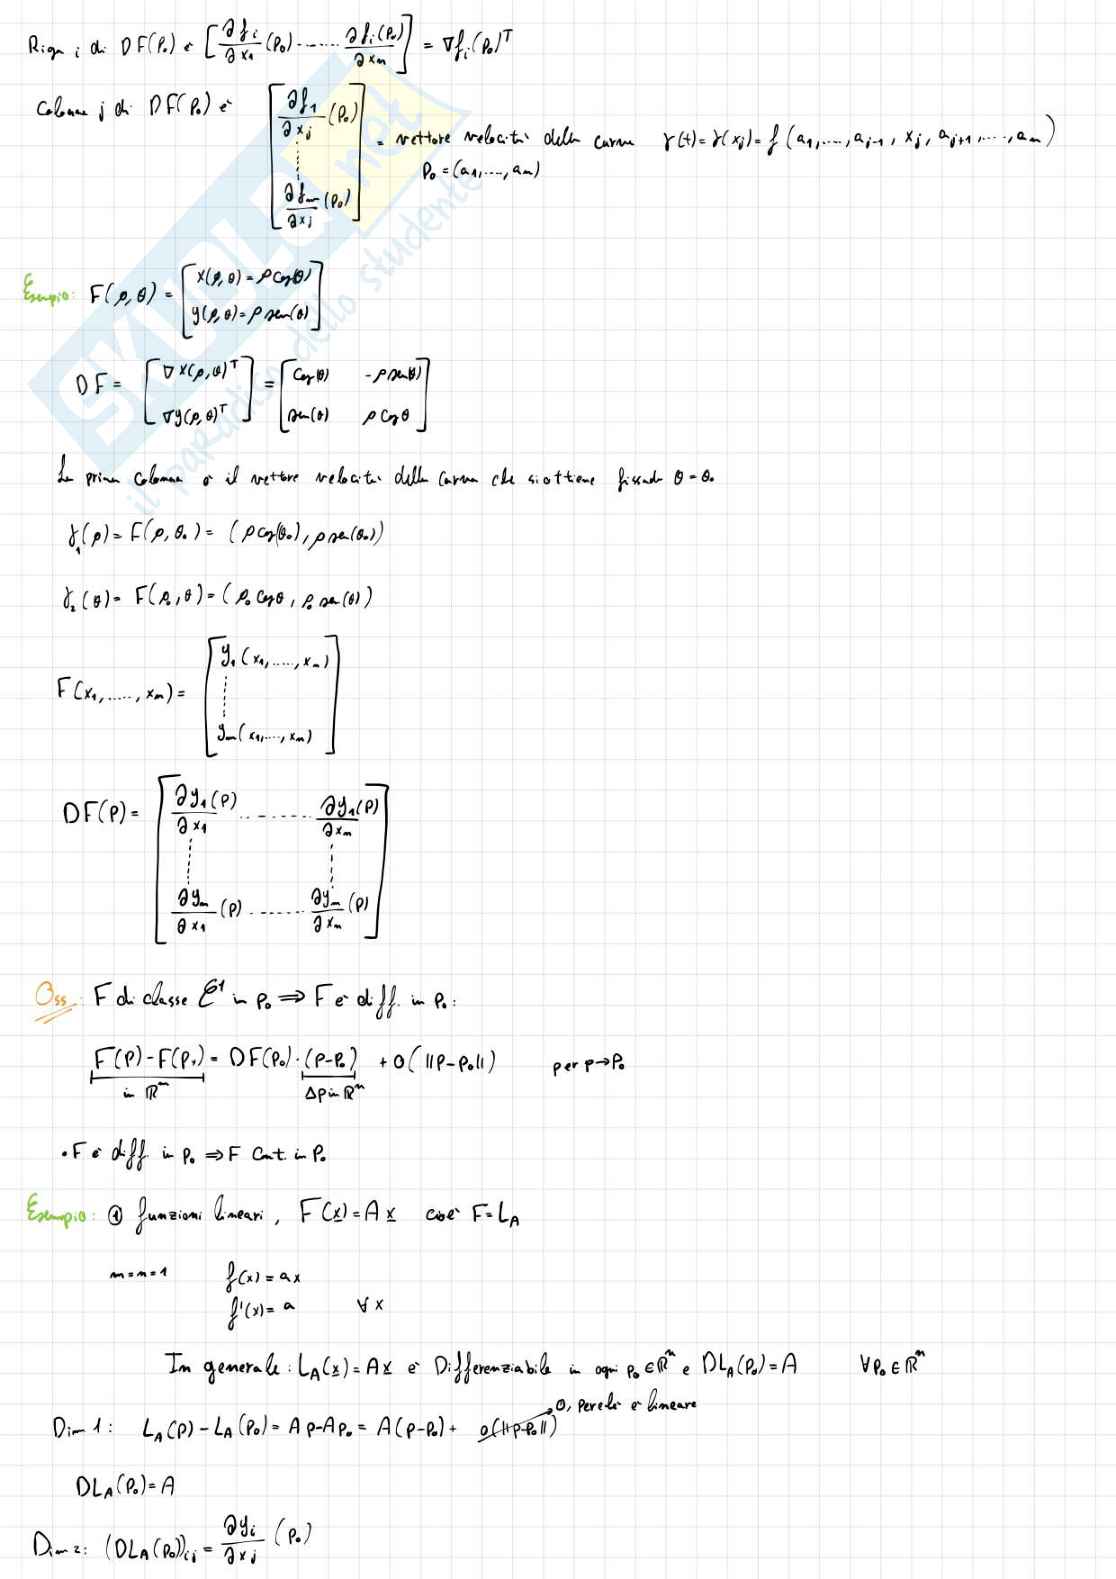 Riga i di DF(P₀) è [∂fᵢ/∂x₁ (P₀) ...... ∂fᵢ(P₀)/∂xₙ] = ∇fᵢ(P₀)ᵀ
Colonna j di DF(P₀) è [∂f₁/∂xⱼ (P₀) ...... ∂fₘ/∂xⱼ (P₀)] = vettore velocità della curva γ(t)=γ(xⱼ)=f(a₁,....,aⱼ₋₁, xⱼ, aⱼ₊₁,....,aₙ)
P₀=(a₁,....,aₙ)
Esempio: F(ρ,θ) = [x(ρ,θ)=ρcos(θ)
y(ρ,θ)=ρsen(θ)]
DF = [∇x(ρ,θ)ᵀ
∇y(ρ,θ)ᵀ] = [cos(θ) -ρsen(θ)
sen(θ) ρcosθ]
La prima colonna è il vettore velocità della curva che si ottiene fissando θ=θ₀
γ₁(ρ)=F(ρ,θ₀)=(ρcos(θ₀), ρsen(θ₀))
γ₂(θ)=F(ρ₀,θ)=(ρ₀cosθ, ρ₀sen(θ))
F(x₁,.....,xₙ)= [y₁(x₁,.....,xₙ)
......
yₘ(x₁,....,xₙ)]
DF(P)= [∂y₁(P)/∂x₁ ........ ∂y₁(P)/∂xₙ
......
∂yₘ/∂x₁ (P) ....... ∂yₘ/∂xₙ (P)]
Oss: F di classe C¹ in P₀ ⇒ F è diff. in P₀:
F(P)-F(P₀)= DF(P₀)·(P-P₀) + o(||P-P₀||) per p→P₀
in ℝᵐ ΔP in ℝⁿ
• F è diff. in P₀ ⇒ F cont. in P₀
Esempio: ① funzioni lineari, F(x)=Ax cioè F=L_A
m=n=1 f(x)=ax
f'(x)=a ∀x
In generale: L_A(x)=Ax è Differenziabile in ogni P₀∈ℝⁿ e DL_A(P₀)=A ∀P₀∈ℝⁿ
0, perché è lineare
Dim 1: L_A(P)-L_A(P₀)=AP-AP₀=A(P-P₀)+ o(||P-P₀||)
DL_A(P₀)=A
Dim 2: (DL_A(P₀))ᵢⱼ = ∂yᵢ/∂xⱼ (P₀)
SKUOLA.net
il paradiso dello studente